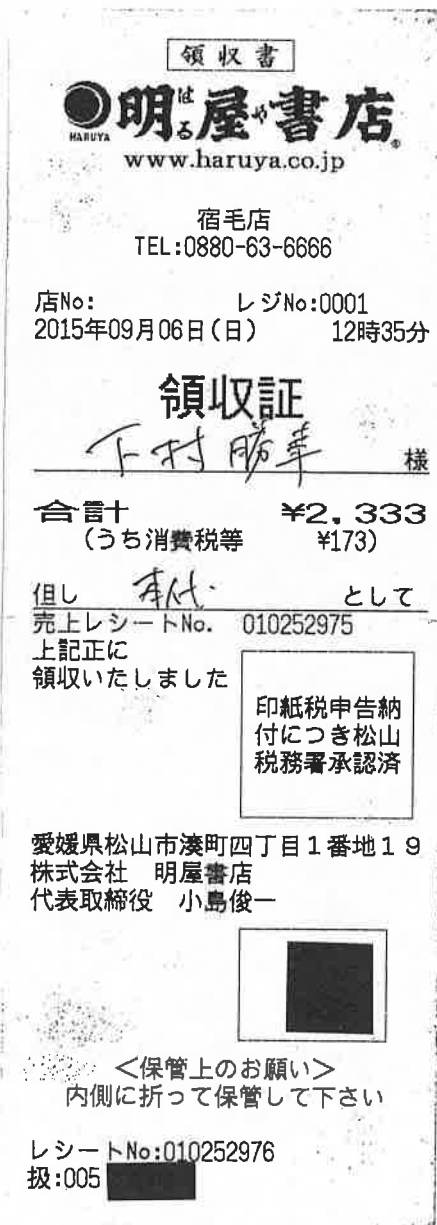 領収書
HARUYA 明屋書店
はる や
www.haruya.co.jp
宿毛店
TEL:0880-63-6666
店No: レジNo:0001
2015年09月06日(日) 12時35分
領収証
下村勝幸 様
合計 ¥2,333
(うち消費税等 ¥173)
但し 本代 として
売上レシートNo. 010252975
上記正に
領収いたしました
印紙税申告納
付につき松山
税務署承認済
愛媛県松山市湊町四丁目1番地19
株式会社 明屋書店
代表取締役 小島俊一
<保管上のお願い>
内側に折って保管して下さい
レシートNo:010252976
扱:005